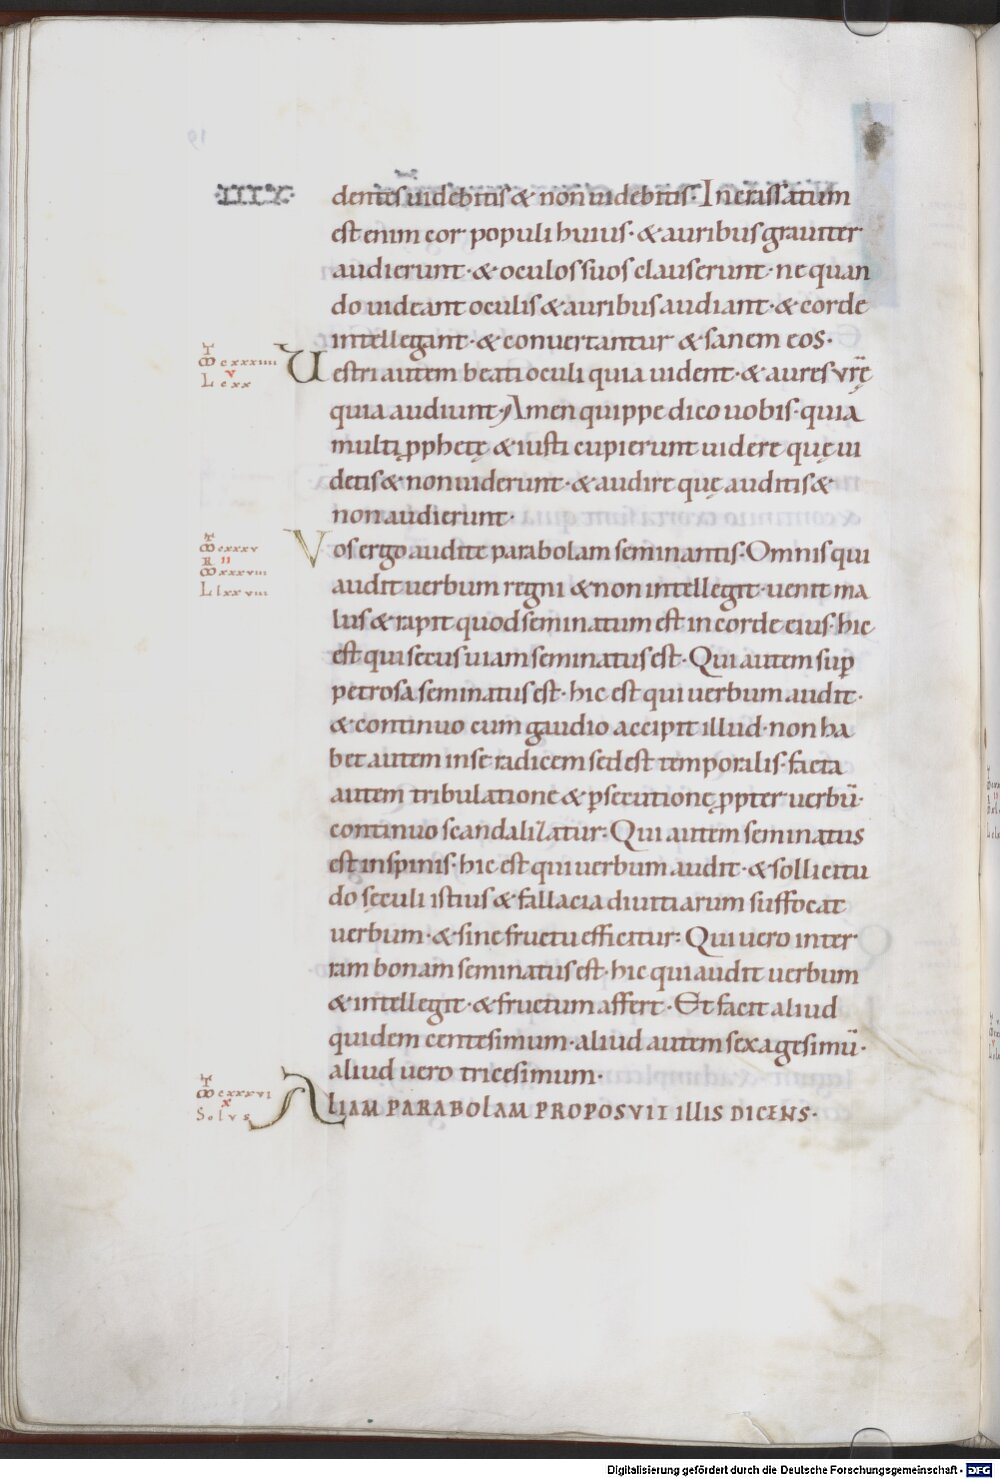 dentes uidebitis & non uidebitis. Incrassatum
est enim cor populi huius. & auribus grauiter
audierunt. & oculos suos clauserunt. ne quan
do uideant oculis & auribus audiant. & corde
intellegant. & conuertantur & sanem eos.
Uestri autem beati oculi quia uident. & aures vr̄ę
quia audiunt. Amen quippe dico uobis. quia
multi ꝓphetę & iusti cupierunt uidere quę ui
detis & non uiderunt. & audire quę auditis &
non audierunt.
Vos ergo audite parabolam seminantis. Omnis qui
audit uerbum regni & non intellegit. uenit ma
lus & rapit quod seminatum est in corde eius. hic
est qui secus uiam seminatus est. Qui autem suꝑ
petrosa seminatus est. hic est qui uerbum audit.
& continuo cum gaudio accipit illud. non ha
bet autem in se radicem sed est temporalis. facta
autem tribulatione & ꝑsecutione ꝓpter uerbū.
continuo scandalizatur. Qui autem seminatus
est in spinis. hic est qui uerbum audit. & sollicitu
do sęculi istius & fallacia diuitiarum suffocat
uerbum. & sine fructu efficitur. Qui uero inter
ram bonam seminatus est. hic qui audit uerbum
& intellegit. & fructum affert. Et facit aliud
quidem centesimum. aliud autem sexagesimū.
aliud uero tricesimum.
ALIAM PARABOLAM PROPOSVIT ILLIS DICENS.
cxxxiiii
v
L cxx
cxxxv
R II
xxxviii
L lxxviii
cxxxvi
x
Solus
Digitalisierung gefördert durch die Deutsche Forschungsgemeinschaft - DFG